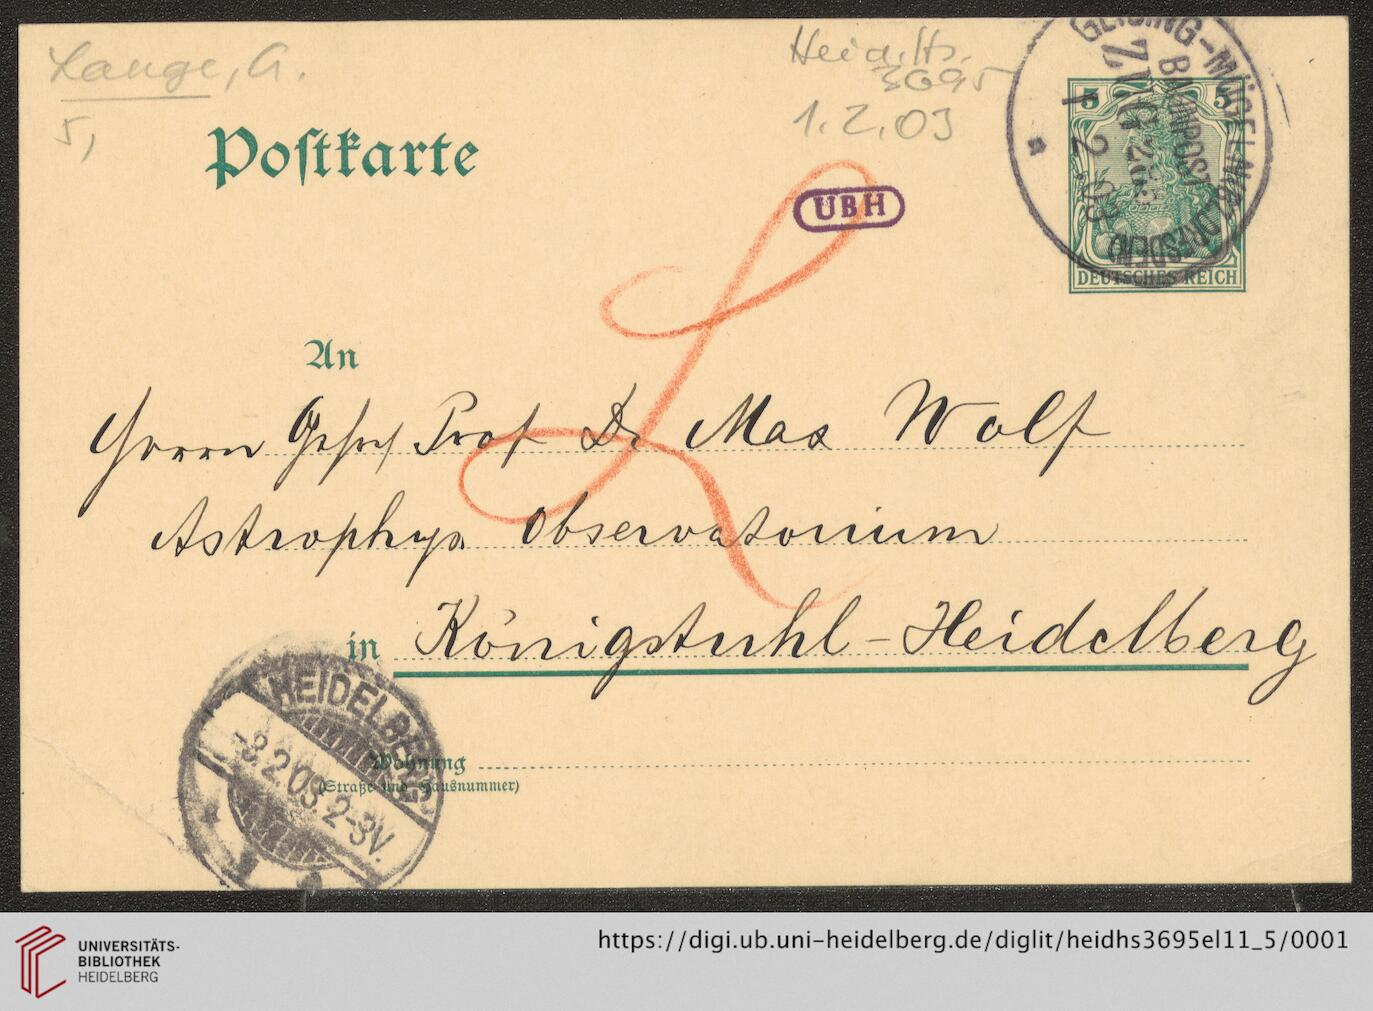 Lange, A.
5,
Heid. Hs.
3695
1.2.03
Postkarte
UBH
GEISING-MÜGELN (BZ. DRESDEN)
BAHNPOST
ZUG
1 2 .03
5 5
DEUTSCHES REICH
An
Herrn Prof Dr Max Wolf
Astrophys. Observatorium
in Königstuhl-Heidelberg
HEIDELBERG
-3.2.03.2-3V.
Wohnung
(Straße und Hausnummer)
UNIVERSITÄTS-
BIBLIOTHEK
HEIDELBERG
https://digi.ub.uni-heidelberg.de/diglit/heidhs3695el11_5/0001